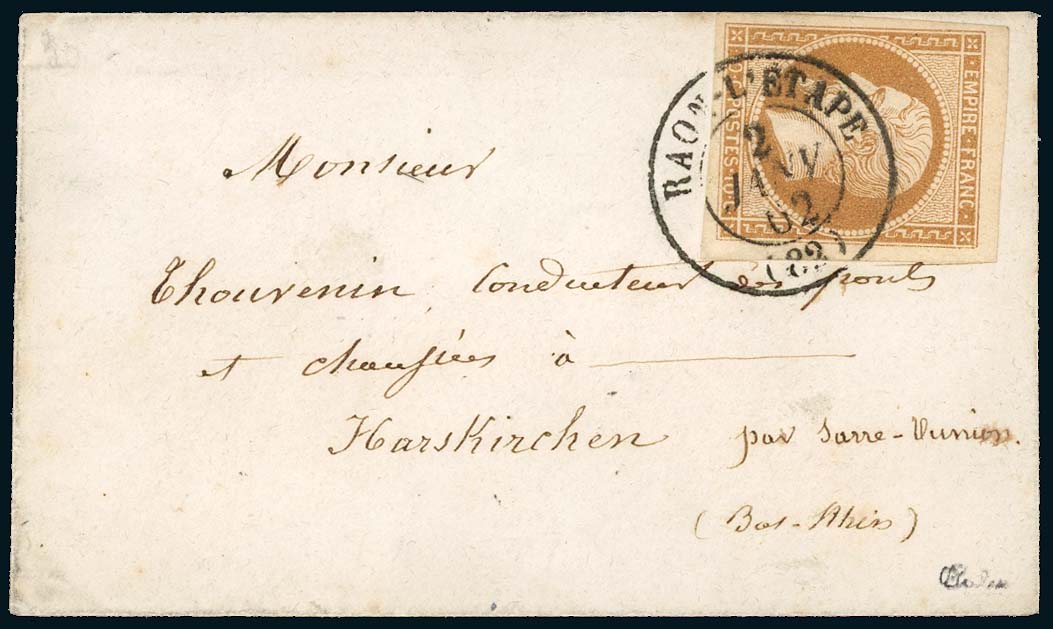 EMPIRE · FRANC ·
10 C · POSTES · 10 C
RAON-L'ÉTAPE
2
JANV
62
(82)
Monsieur
Thouvenin, Conducteur des ponts
et chaussées à
Harskirchen par Sarre-Vunion.
(Bas-Rhin)